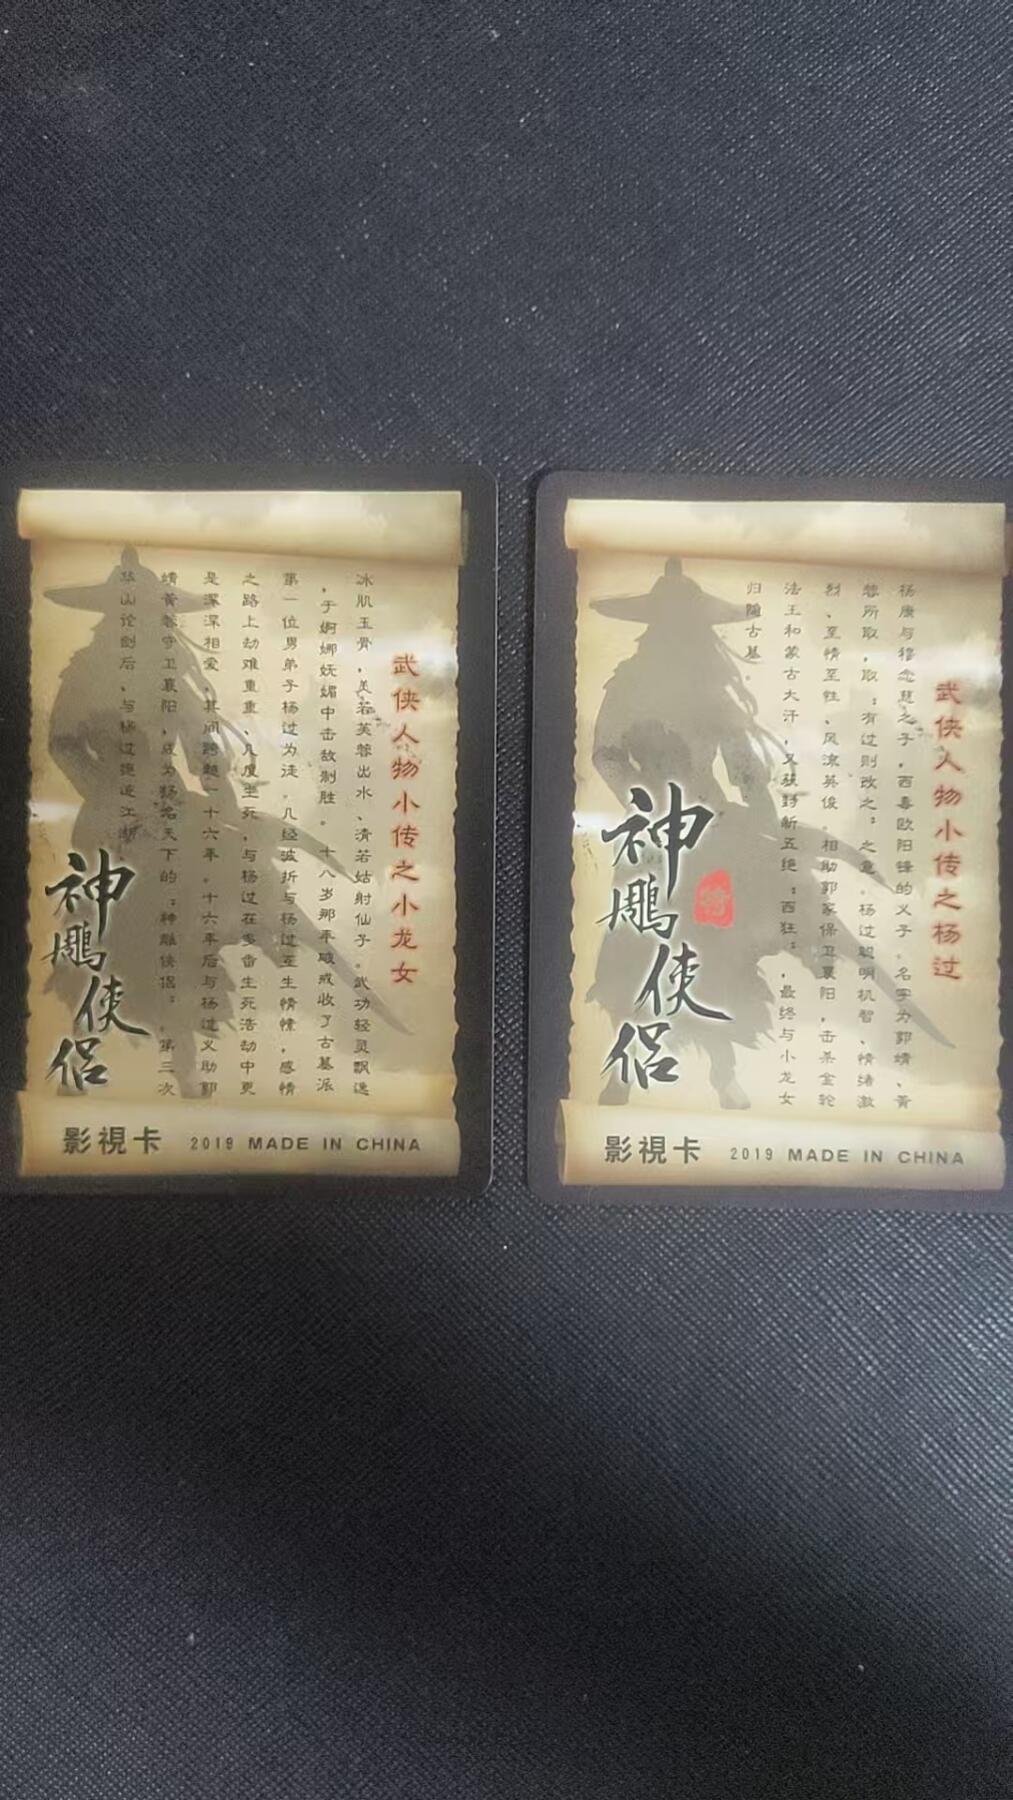 武侠人物小传之小龙女
冰肌玉骨，美若芙蓉出水、清若姑射仙子。武功轻灵飘逸
，于婀娜妩媚中击敌制胜。十八岁那年破戒收了古墓派
第一位男弟子杨过为徒。几经波折与杨过互生情愫，感情
之路上劫难重重、几度生死，与杨过在多番生死浩劫中更
是深深相爱，其间跨越一十六年。十六年后与杨过义助郭
靖黄蓉守卫襄阳，成为扬名天下的：神雕侠侣：。第三次
华山论剑后、与杨过
江湖
神雕侠侣
影視卡 2019 MADE IN CHINA
武侠人物小传之杨过
杨康与穆念慈之子，西毒欧阳锋的义子。名字为郭靖、黄
蓉所取，取：有过则改之：之意。杨过聪明机智、情绪激
烈、至情至性、风流英俊。相助郭家保卫襄阳，击杀金轮
法王和蒙古大汗，又获封新五绝：西狂：，最终与小龙女
归隐古墓。
神雕侠侣
影視卡 2019 MADE IN CHINA